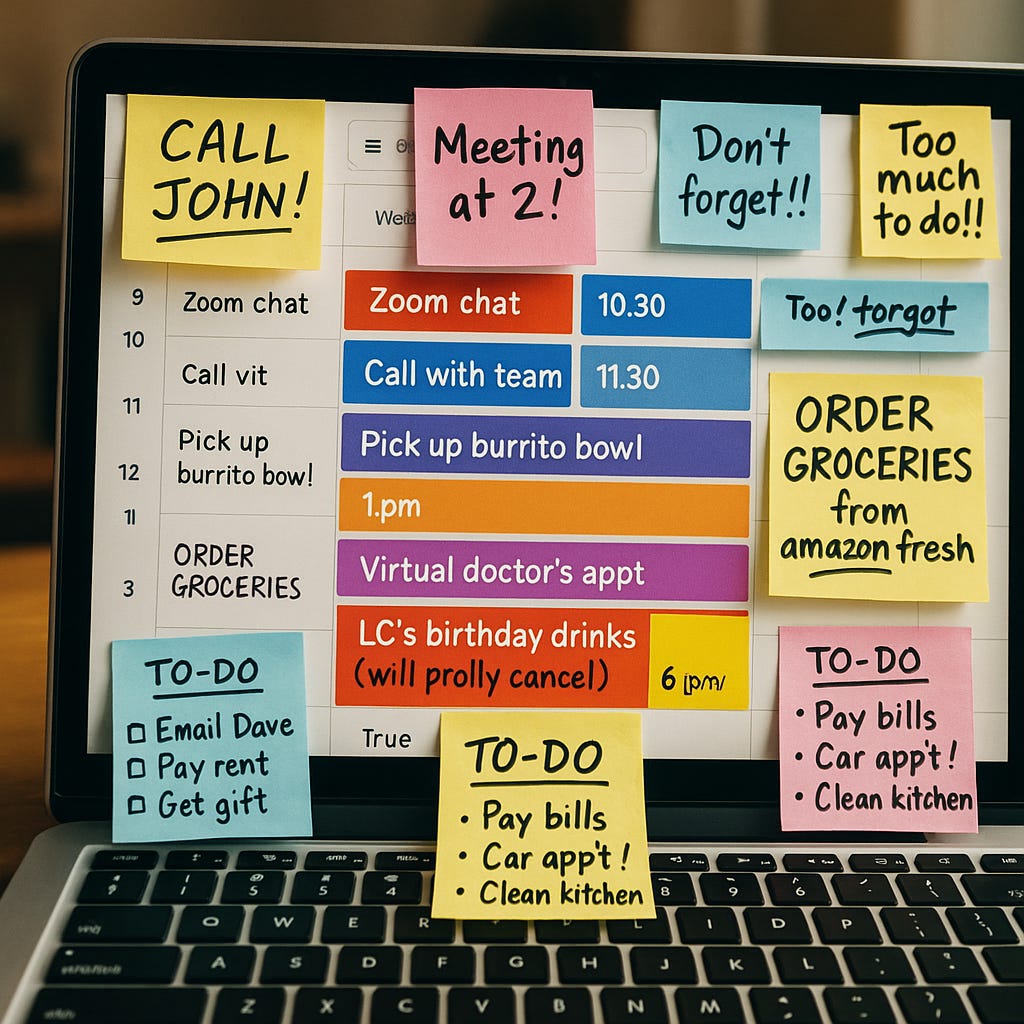 CALL
JOHN!
Meeting
at 2!
Don't
forget!!
Too
much
to do!!
9
Zoom chat
Zoom chat
10.30
Too! forgot
10
Call vit
Call with team
11.30
11
Pick up
burrito bow!
Pick up burrito bowl
12
1.pm
ORDER
GROCERIES
from
amazon fresh
11
ORDER
GROCERIES
Virtual doctor's appt
3
LC's birthday drinks
(will prolly cancel)
6
True
TO-DO
Email Dave
Pay rent
Get gift
TO-DO
• Pay bills
• Car app't!
• Clean kitchen
TO-DO
• Pay bills
• Car app't!
• Clean kitchen
5 5 4
8 9 6
Q W E R
I D P
A S D F G H J K L
Z X C V B N M